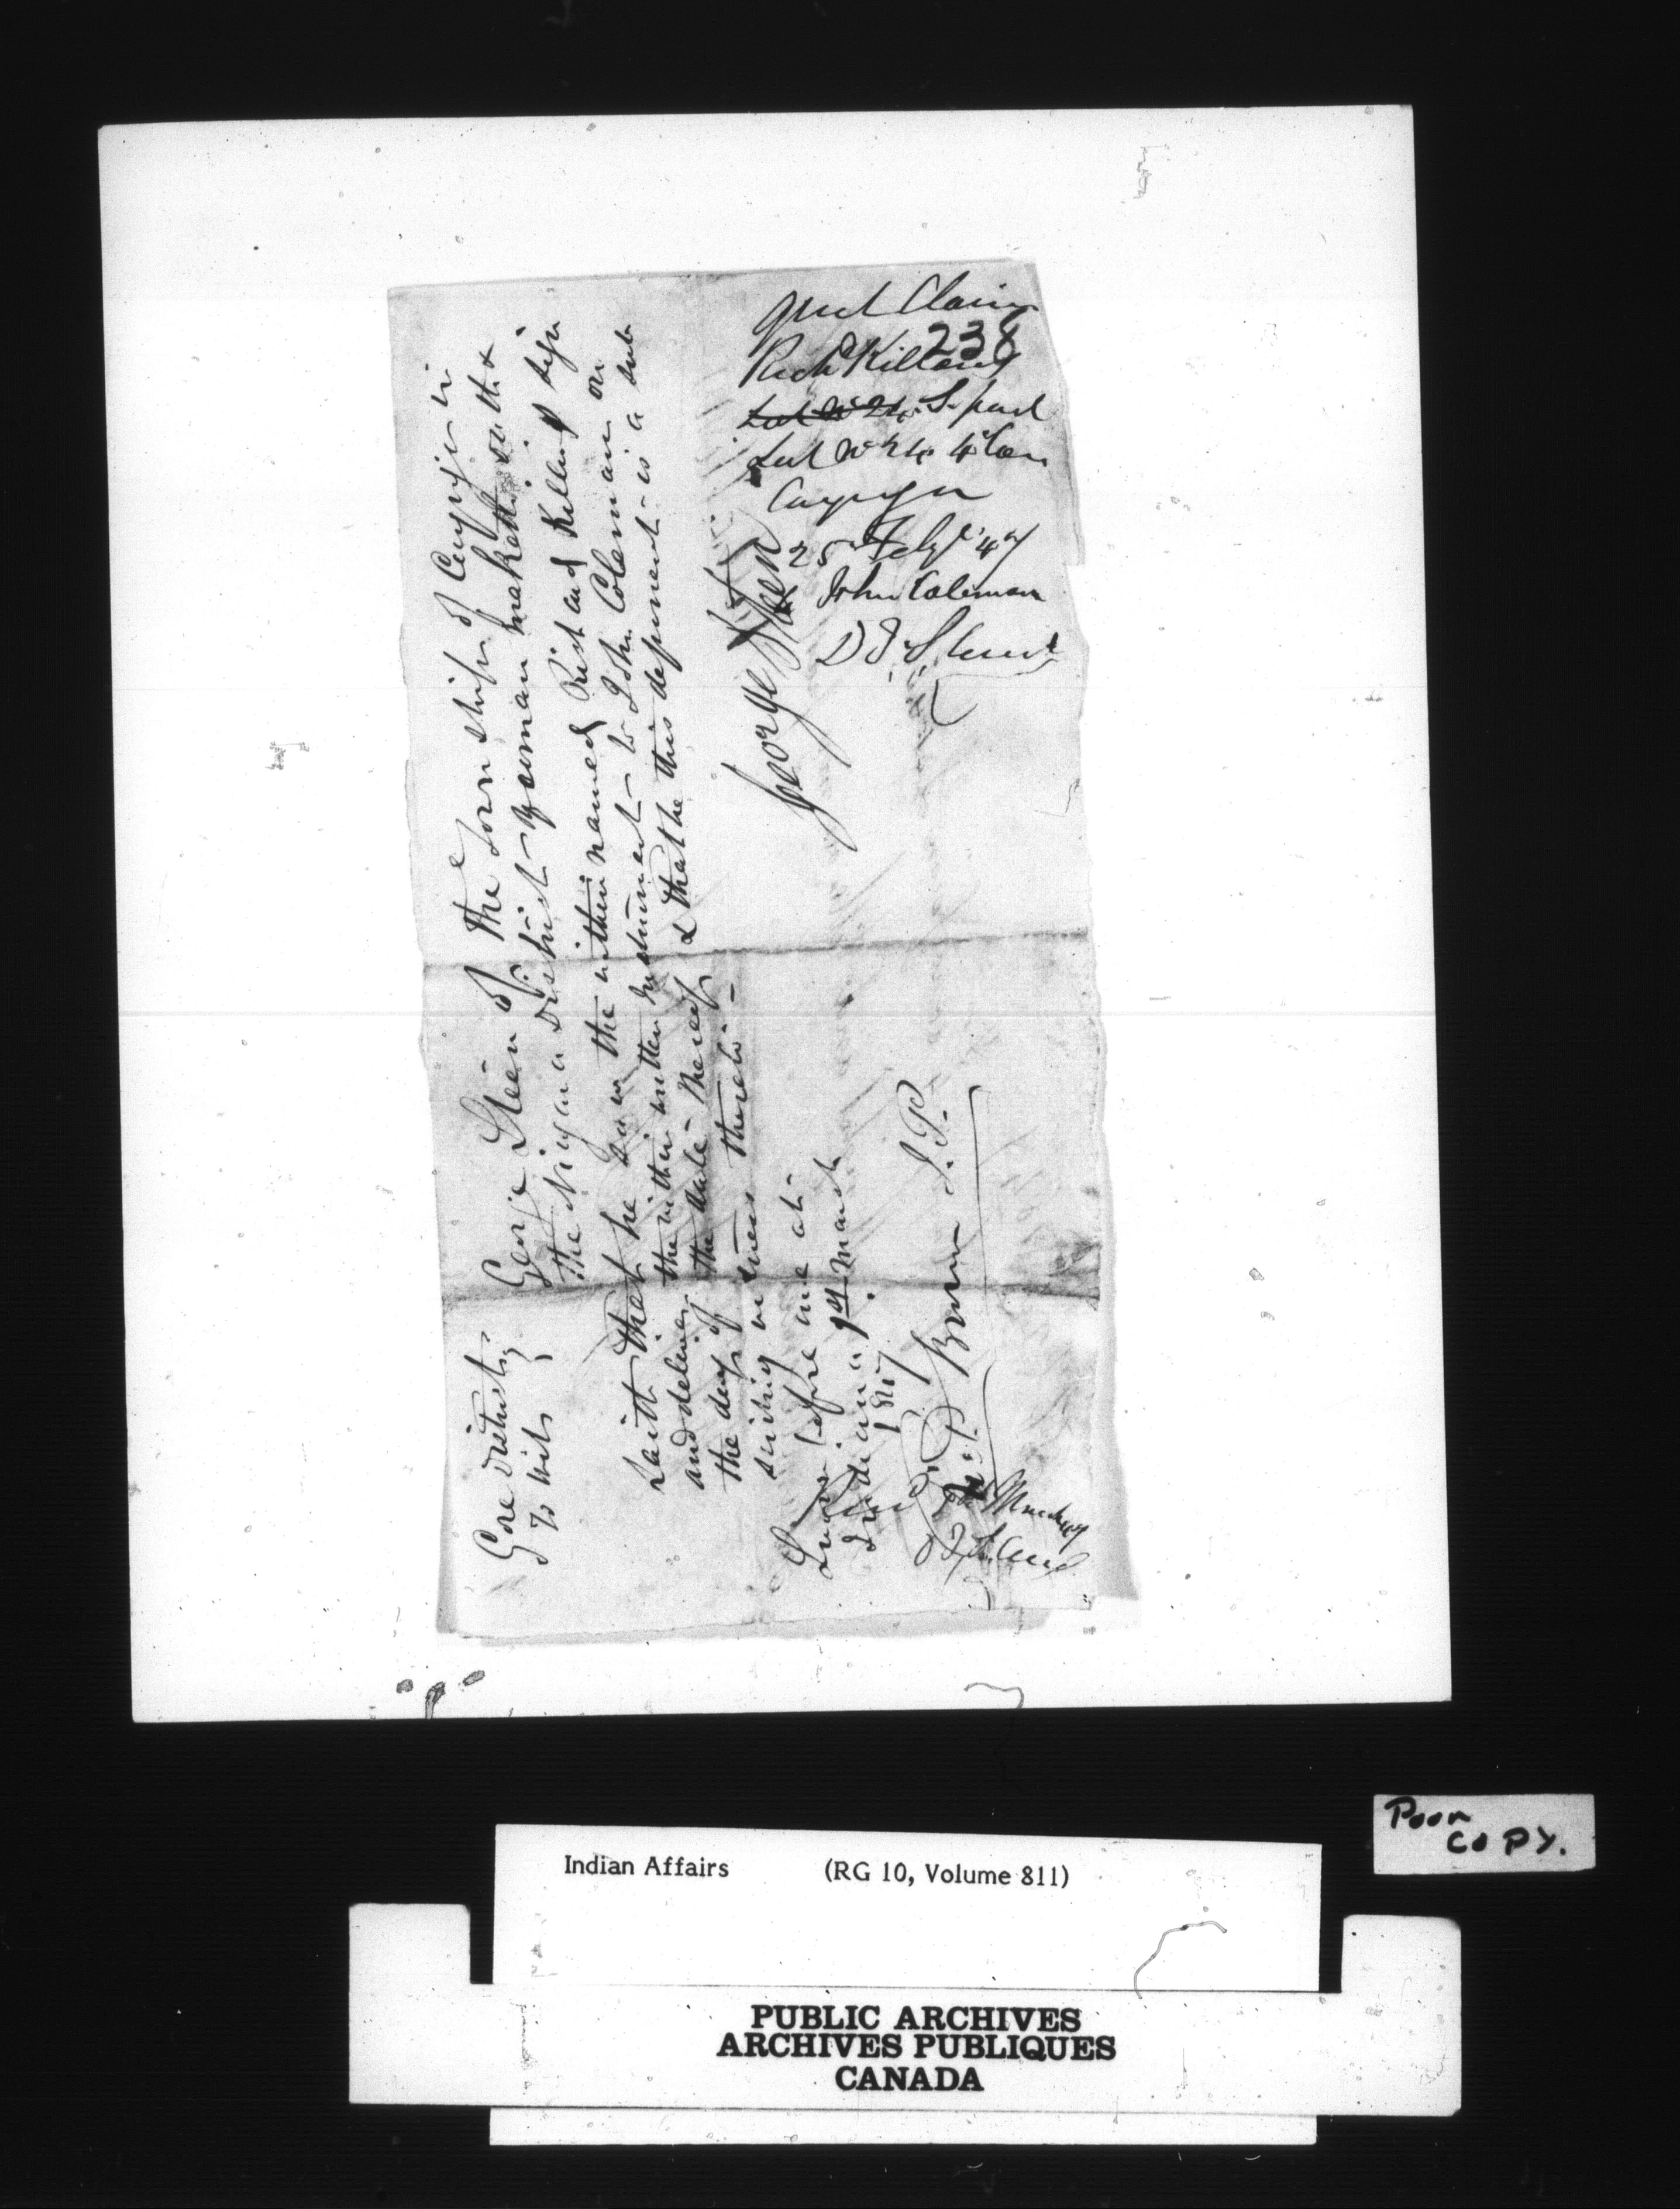 Gore District
To Wit
George Steen of the Township of Cayuga in
the Niagara District Yeoman maketh oath &
saith that he saw the within named Richard Killeng sign
and deliver the within written Instrument to John Coleman on
the day of the date thereof & that he this deponent is a sub
scribing witness thereto
George Steen
Sworn before me at
Indiana 1st March
1847
Brown J.P.
Quit Claim
238
Richd
Lot No 24 S. part
Lot No 24 4 Con
Cayuga
25 Feby '47
John Coleman
Poor
COPY.
Indian Affairs (RG 10, Volume 811)
PUBLIC ARCHIVES
ARCHIVES PUBLIQUES
CANADA